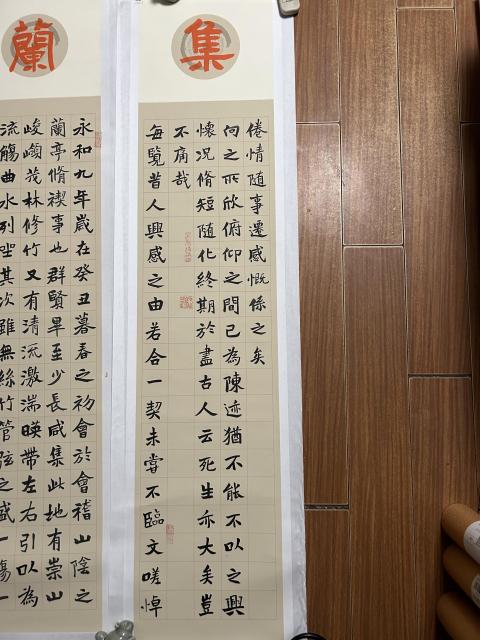 蘭
永和九年歲在癸丑暮春之初會於會稽山陰之
蘭亭脩禊事也群賢畢至少長咸集此地有崇山
峻嶺茂林修竹又有清流激湍暎帶左右引以為
流觴曲水列坐其次雖無絲竹管弦之盛一觴一
集
倦情随事遷感慨係之矣
向之所欣俯仰之間已為陳迹猶不能不以之興
懷况脩短随化終期於盡古人云死生亦大矣豈
不痛哉
每覽昔人興感之由若合一契未嘗不臨文嗟悼